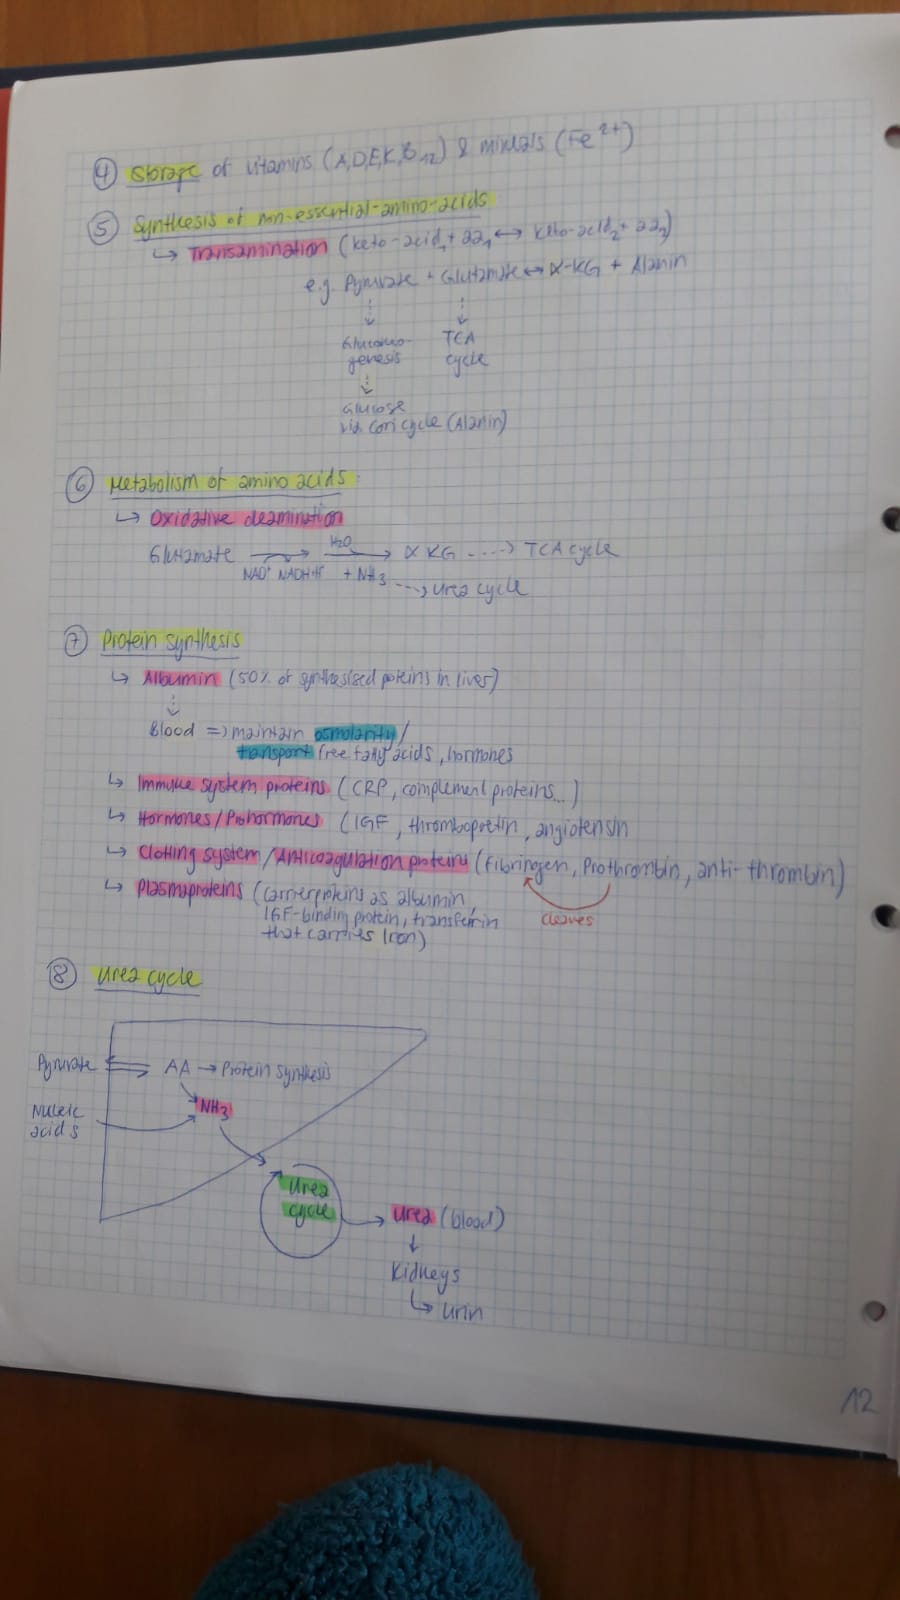 ④ Storage of vitamins (A,D,E,K,B12) & minerals (Fe2+)
⑤ Synthesis of non-essential-amino-acids
↳ Transamination (keto-acid1 + aa1 ↔ keto-acid2 + aa2)
e.g. Pyruvate + Glutamate ↔ α-KG + Alanin
Glucono- TCA
genesis cycle
Glucose
via cori cycle (Alanin)
⑥ Metabolism of amino acids:
↳ Oxidative deamination
H2O
Glutamate → → α KG ----> TCA cycle
NAD+ NADH+H+ + NH3 ---> urea cycle
⑦ Protein synthesis
↳ Albumin (50% of synthesised proteins in liver)
Blood => maintain osmolarity/
transport free fatty acids, hormones
↳ Immune system proteins (CRP, complement proteins...)
↳ Hormones/Prohormones (IGF, thrombopoetin, angiotensin
↳ Clotting system/Anticoagulation proteins (Fibringen, Prothrombin, anti-thrombin)
↳ Plasmaproteins (carrierproteins as albumin,
cleaves
IGF-binding protein, transferrin
that carries Iron)
⑧ Urea cycle
Pyruvate AA → Protein synthesis
NH3
Nucleic
acids
Urea
cycle → Urea (blood)
↓
Kidneys
↳ urin
12